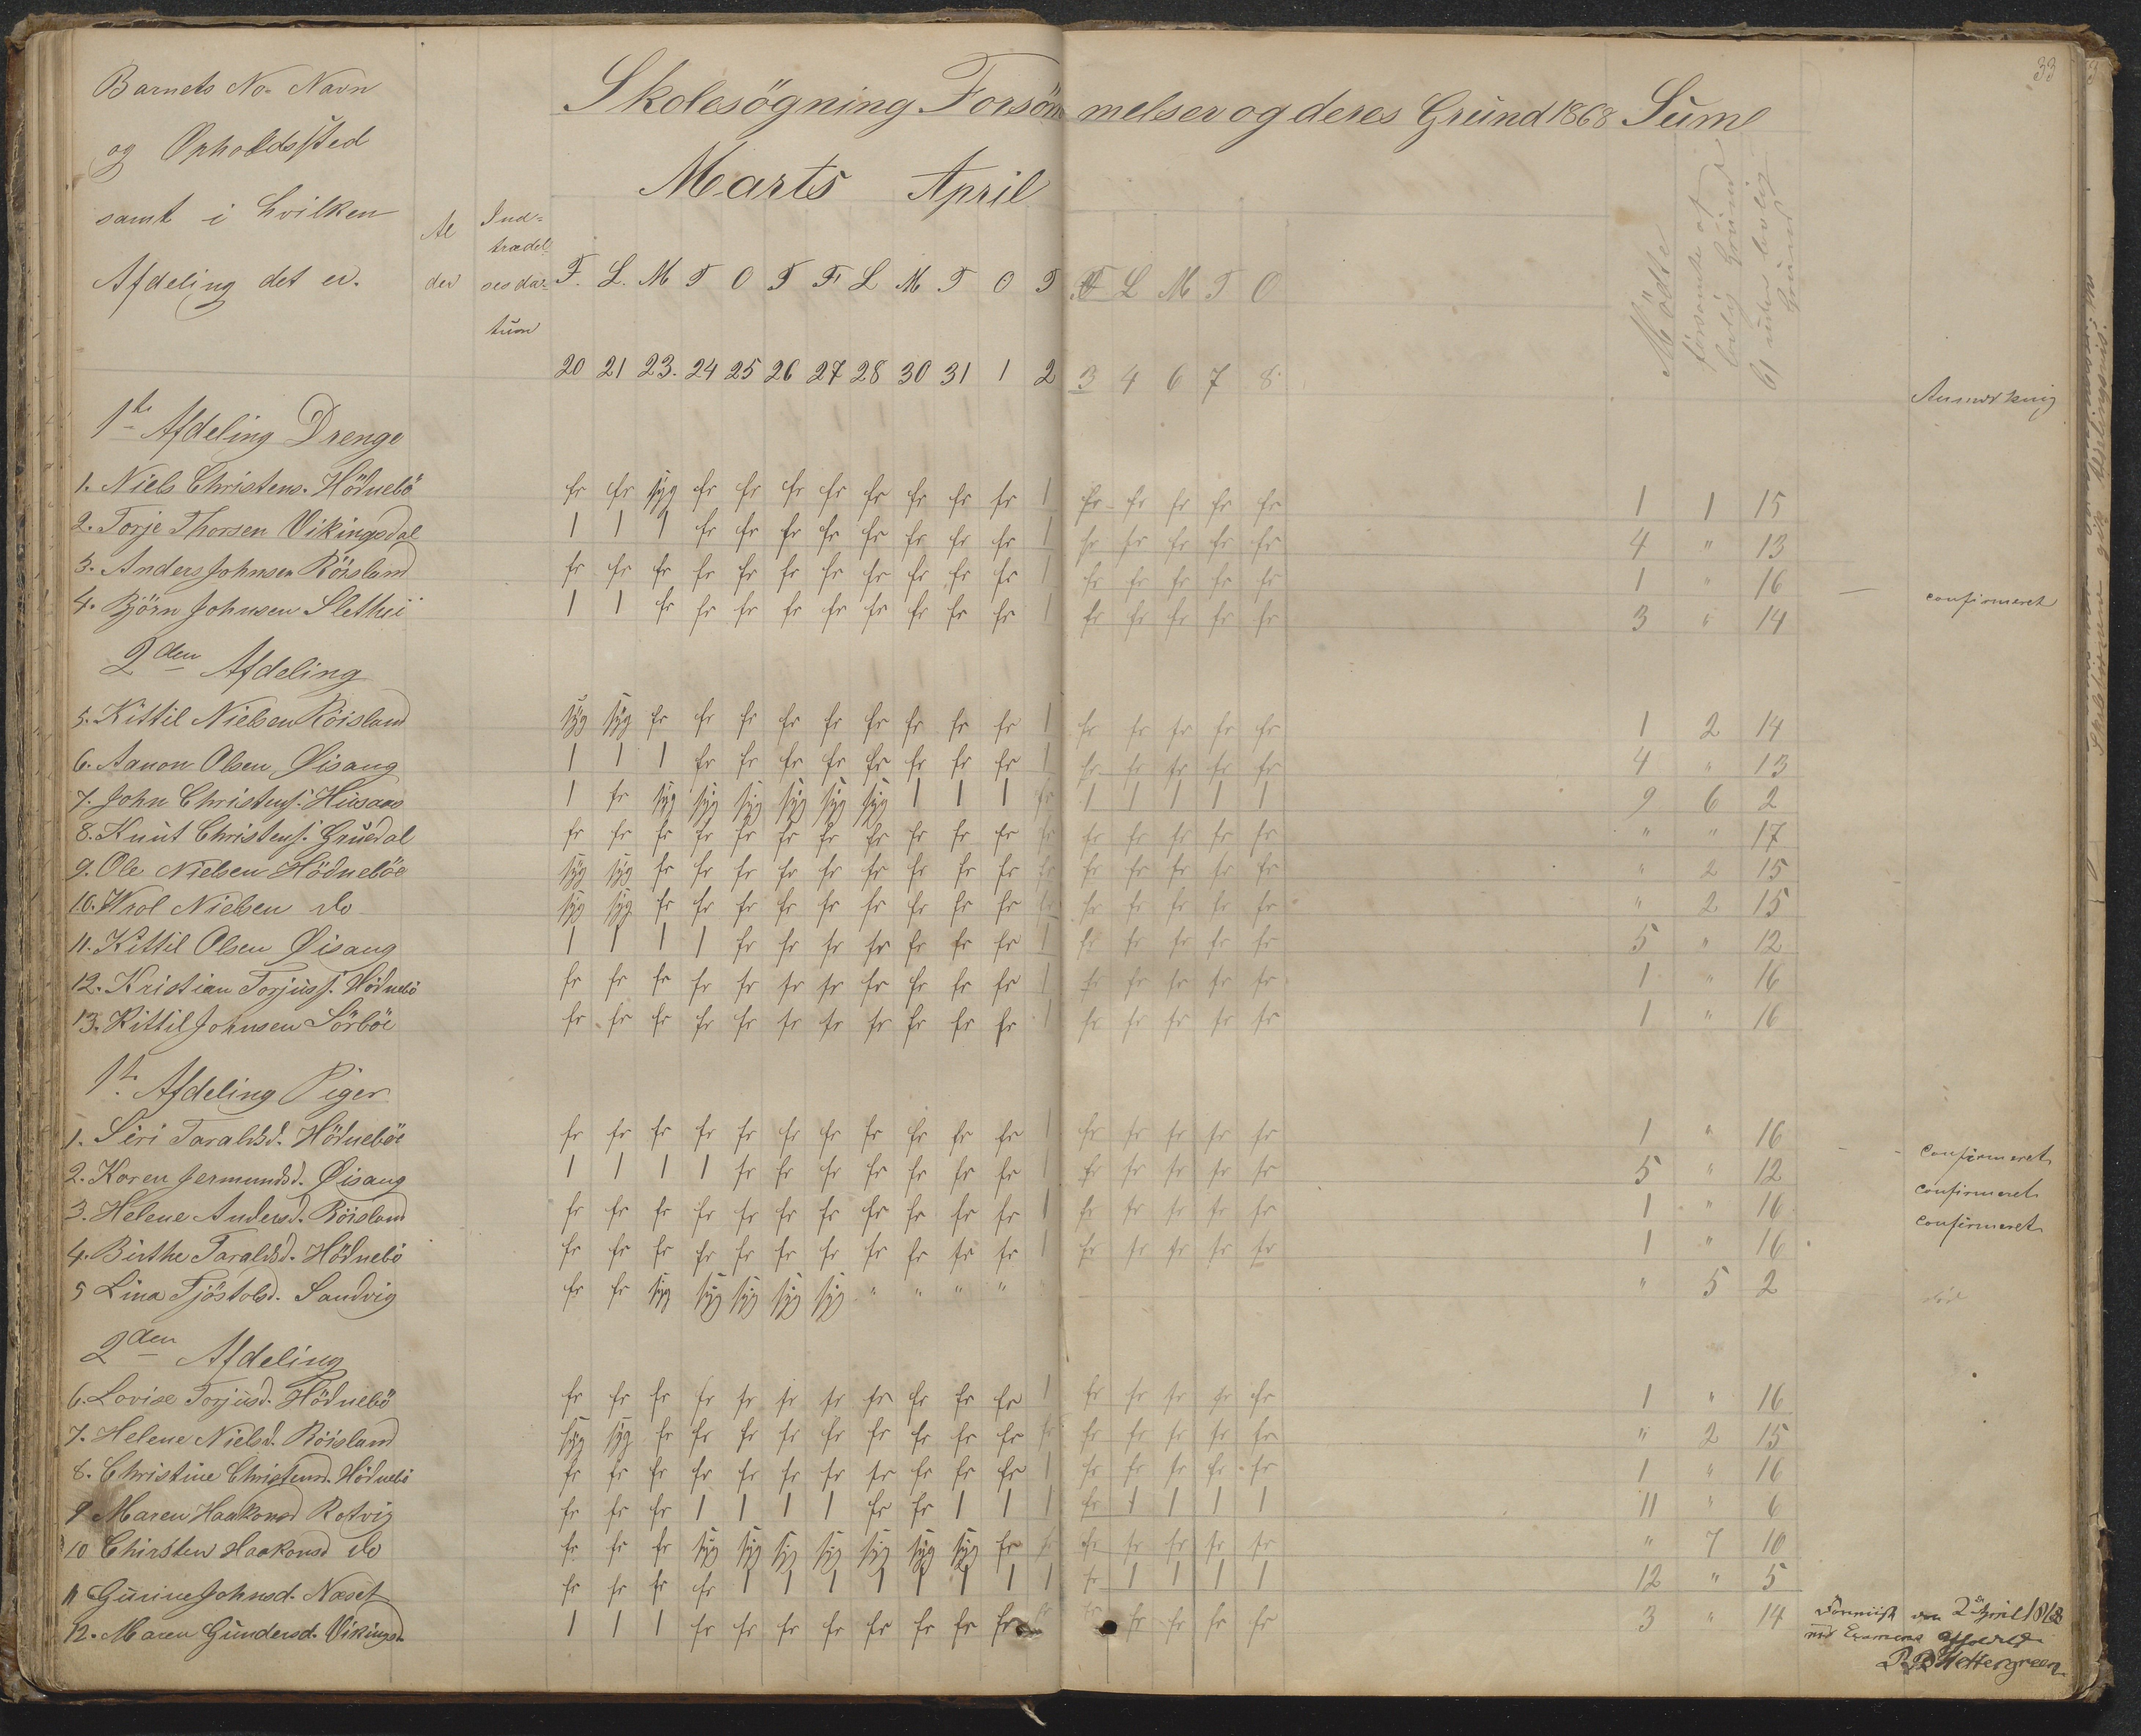 33
Barnets No. Navn
og Opholdssted
samt i hvilken
Afdeling det er.
Al
der
Ind=
trædel=
ses da=
tum
Skolesögning Forsöm melser og deres Grund 1868 Sum
Marts April
F. L. M T O T F L M T O T F L M T O
20 21 23. 24 25 26 27 28 30 31 1 2 3 4 6 7 8
Mödte
forsömte af
lovlig Grund
uden lovlig
Grund
Anmærkning
1ste Afdeling Drenge
1. Niels Christens. Hödnebö fr fr syg fr fr fr fr fr fr fr fr 1 fr fr fr fr fr 1 1 15
2. Torje Thorsen Vikingsdal 1 1 1 fr fr fr fr fr fr fr fr 1 fr fr fr fr fr 4 " 13
3. Anders Johnsen Röisland fr fr fr fr fr fr fr fr fr fr fr 1 fr fr fr fr fr 1 " 16
4. Björn Johnsen Slethei 1 1 fr fr fr fr fr fr fr fr fr 1 fr fr fr fr fr 3 " 14 — confirmeret
2den Afdeling
5. Kittil Nielsen Röisland syg syg fr fr fr fr fr fr fr fr fr 1 fr fr fr fr fr 1 2 14
6. Aanon Olsen Øisang 1 1 1 fr fr fr fr fr fr fr fr 1 fr fr fr fr fr 4 " 13
7. John Christens. Husaas 1 fr syg syg syg syg syg syg 1 1 1 fr 1 1 1 1 1 9 6 2
8. Knut Christens. Gruedal fr fr fr fr fr fr fr fr fr fr fr fr fr fr fr fr fr " " 17
9. Ole Nielsen Hödneböe syg syg fr fr fr fr fr fr fr fr fr fr fr fr fr fr fr " 2 15
10. Wrol Nielsen do syg syg fr fr fr fr fr fr fr fr fr fr fr fr fr fr fr " 2 15
11. Kittil Olsen Øisang 1 1 1 1 fr fr fr fr fr fr fr 1 fr fr fr fr fr 5 " 12
12. Kristian Torjuss. Hödnebö fr fr fr fr fr fr fr fr fr fr fr 1 fr fr fr fr fr 1 " 16
13. Kittil Johnsen Sörböe fr fr fr fr fr fr fr fr fr fr fr 1 fr fr fr fr fr 1 " 16
1ste Afdeling Piger
1. Siri Taraldsd. Hödneböe fr fr fr fr fr fr fr fr fr fr fr 1 fr fr fr fr fr 1 " 16 confirmeret
2. Karen Jermundsd. Øisang 1 1 1 1 fr fr fr fr fr fr fr 1 fr fr fr fr fr 5 " 12 confirmeret
3. Helene Andersd. Röisland fr fr fr fr fr fr fr fr fr fr fr 1 fr fr fr fr fr 1 " 16 confirmeret
4. Birthe Taraldsd. Hödnebö fr fr fr fr fr fr fr fr fr fr fr 1 fr fr fr fr fr 1 " 16
5 Lina Tjöstolsd. Sandvig fr fr syg syg syg syg syg " " " " " 5 2 död
2den Afdeling
6. Lovise Torjusd. Hödnebö fr fr fr fr fr fr fr fr fr fr fr 1 fr fr fr fr fr 1 " 16
7. Helene Nielsd. Röisland syg syg fr fr fr fr fr fr fr fr fr fr fr fr fr fr fr " 2 15
8. Christine Christensd. Hödnebö fr fr fr fr fr fr fr fr fr fr fr 1 fr fr fr fr fr 1 " 16
9 Maren Haakonsd Rotvig fr fr fr 1 1 1 1 fr fr 1 1 1 fr 1 1 1 1 11 " 6
10 Chirsten Haakonsd do fr fr fr syg syg syg syg syg syg syg fr fr fr fr fr fr fr " 7 10
11 Gunine Johnsd. Næset fr fr fr fr 1 1 1 1 1 1 1 1 fr 1 1 1 1 12 " 5
12. Maren Gundersd. Vikingsd. 1 1 1 fr fr fr fr fr fr fr fr fr fr fr fr fr fr 3 " 14
den 2 April 1868